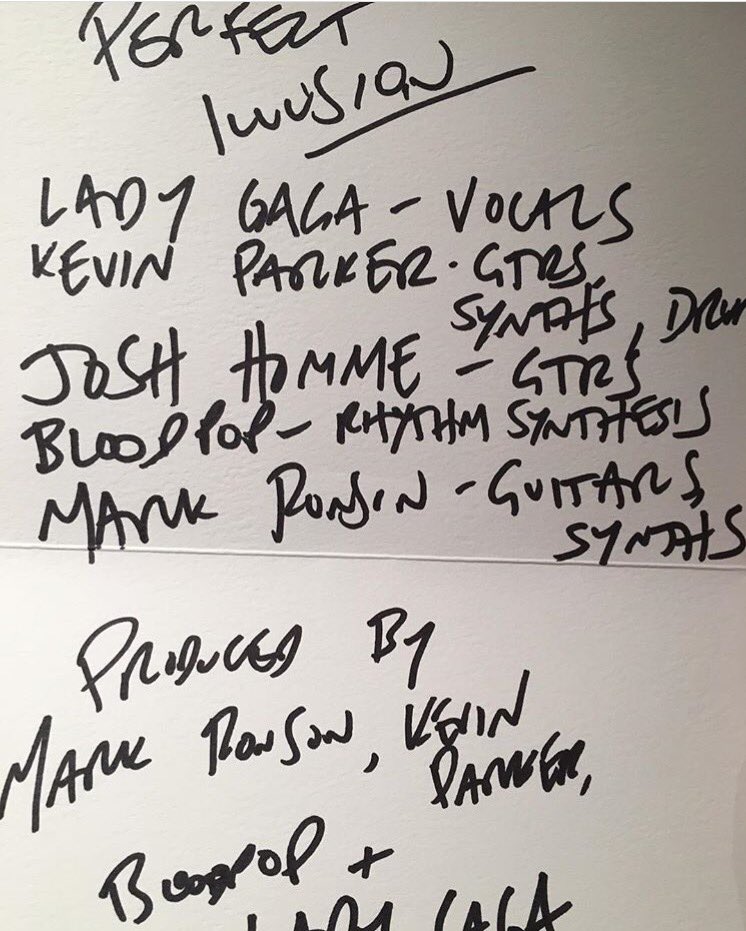 PERFECT
ILLUSION
LADY GAGA - VOCALS
KEVIN PARKER - GTRS,
SYNTHS, DRUM
JOSH HOMME - GTRS
BLOODPOP - RHYTHM SYNTHESIS
MARK RONSON - GUITARS,
SYNTHS
PRODUCED BY
MARK RONSON, KEVIN
PARKER,
BLOODPOP +
LADY GAGA